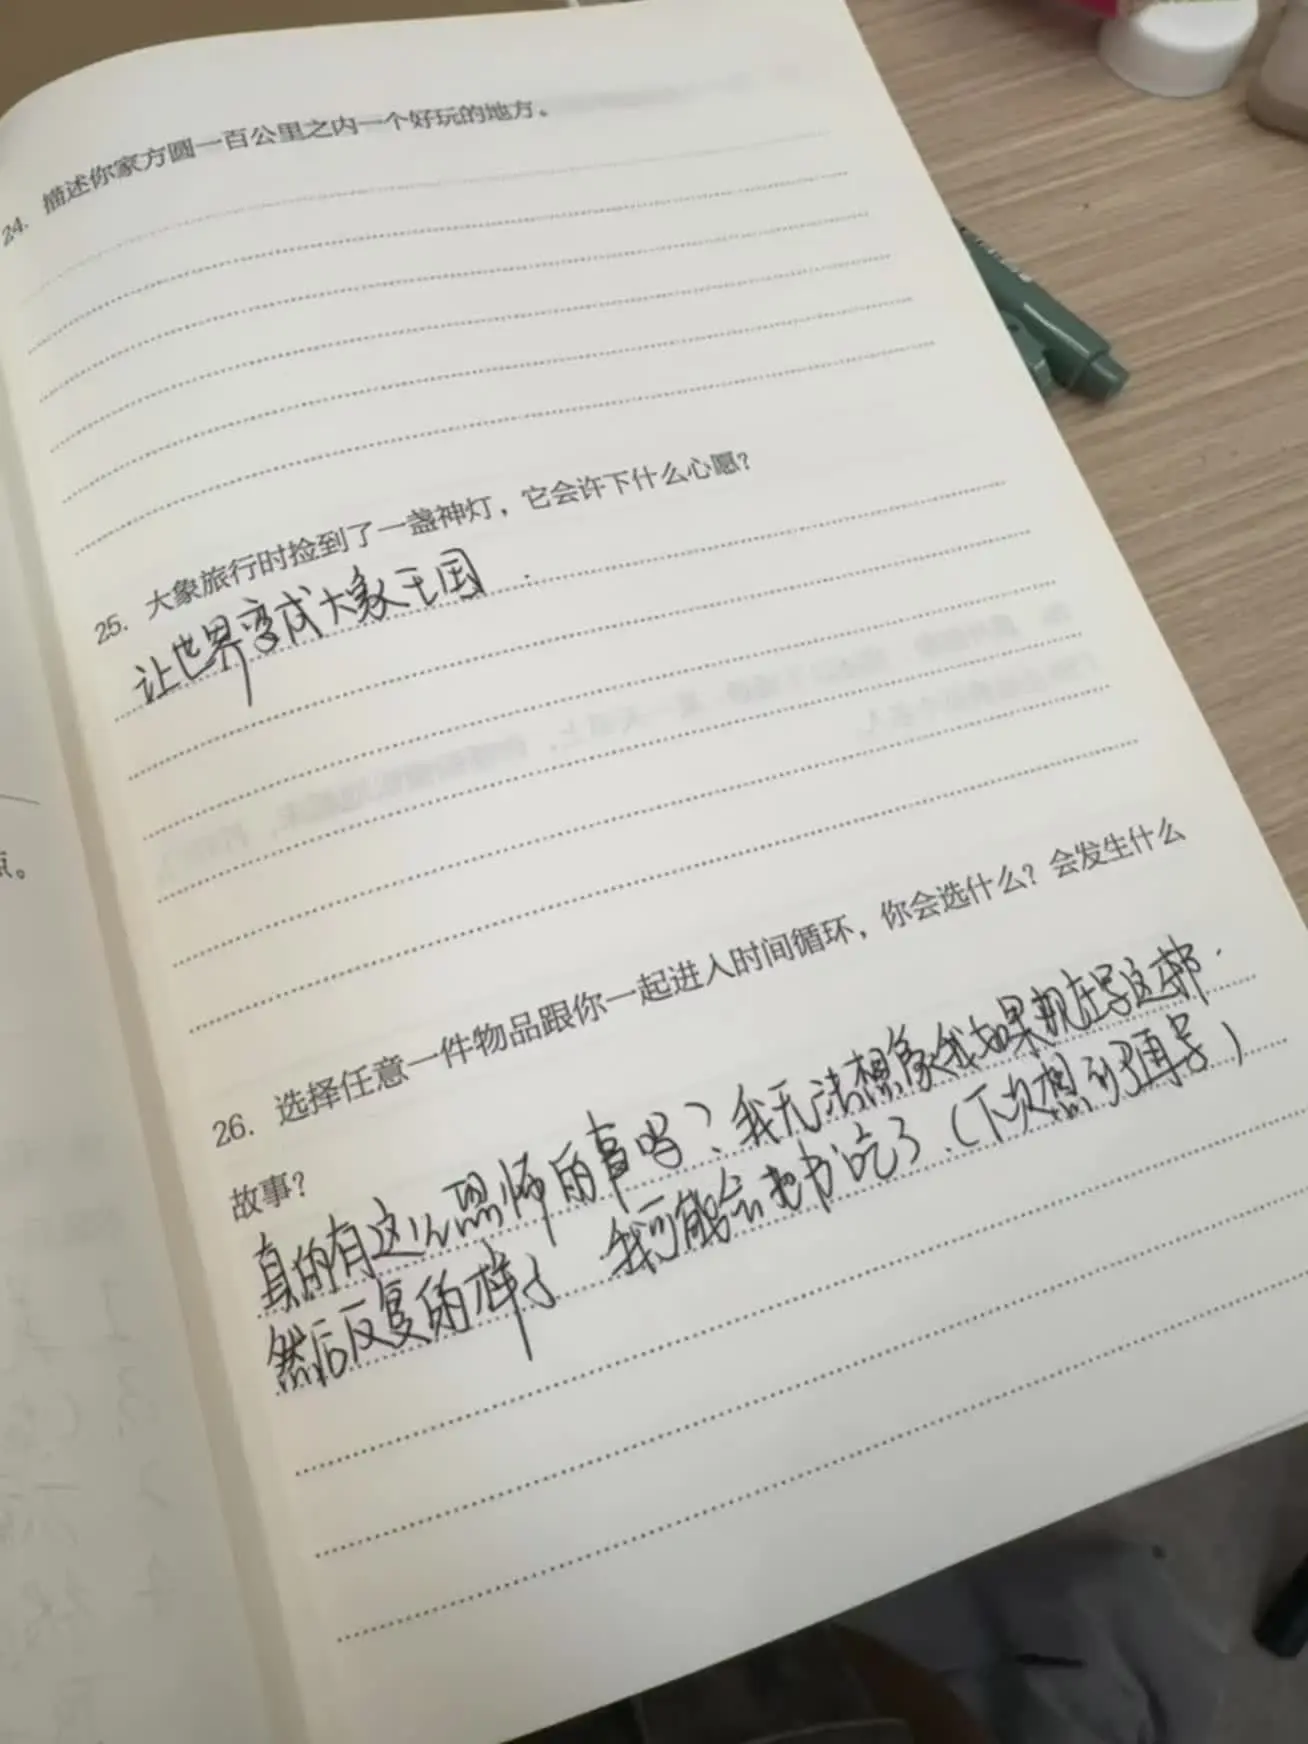 24. 描述你家方圆一百公里之内一个好玩的地方。
25. 大象旅行时捡到了一盏神灯，它会许下什么心愿？
让世界变成大象王国
点。
26. 选择任意一件物品跟你一起进入时间循环，你会选什么？会发生什么
故事？
真的有这么恐怖的事吗？我无法想象我如果现在写这都
然后反复的样子 我可能会把书吃了.(下次想到了再写)